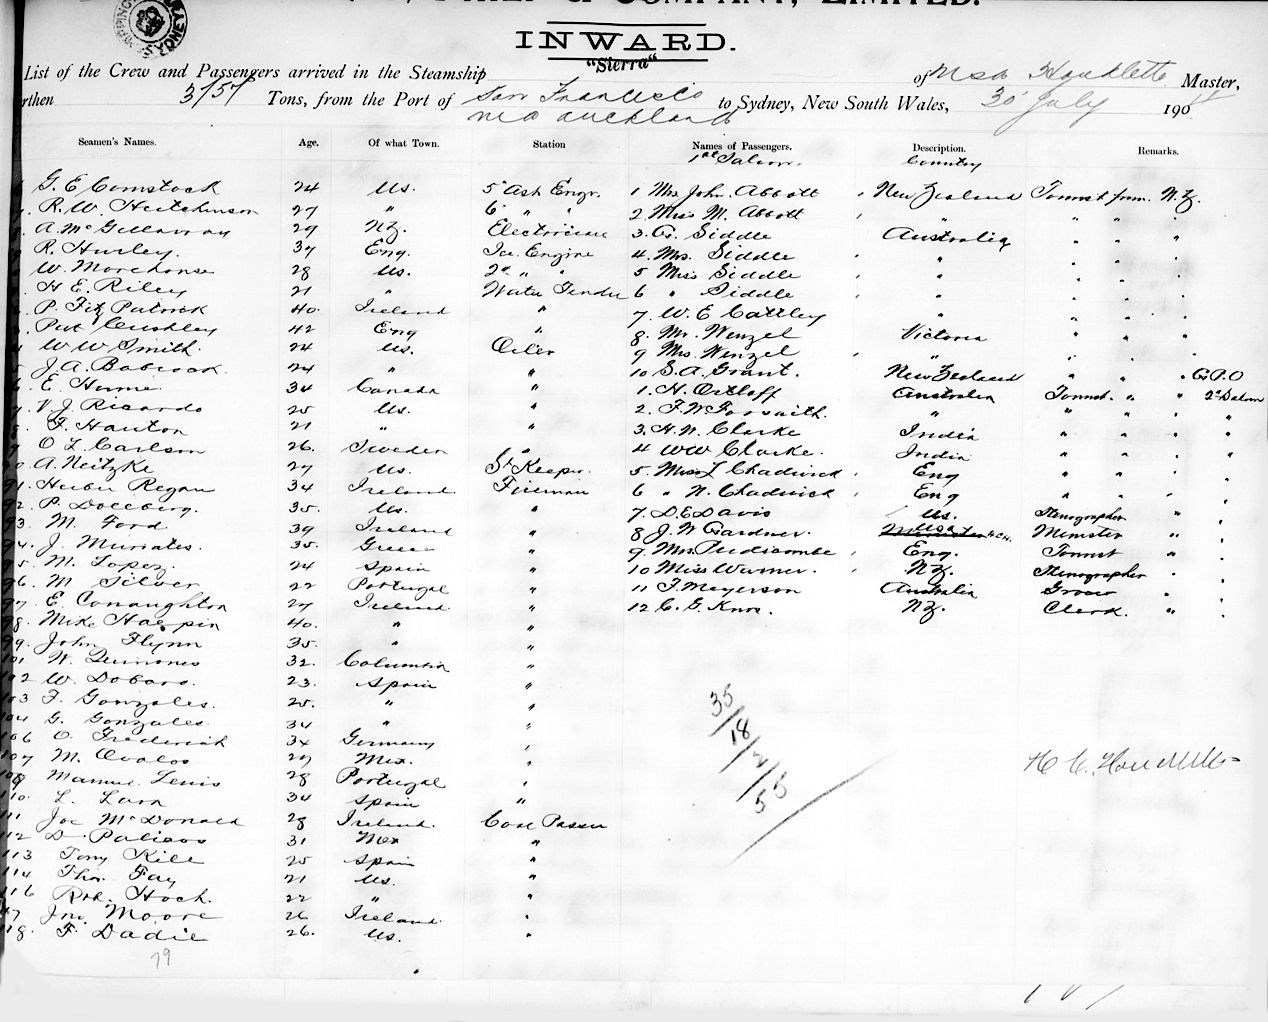 COMPANY, LIMITED.
INWARD.
"Sierra"
List of the Crew and Passengers arrived in the Steamship of Houdlette Master,
rthen 3157 Tons, from the Port of San Francisco to Sydney, New South Wales, 30 July 190
Auckland
Seamen's Names. Age. Of what Town. Station Names of Passengers. Description. Remarks.
1st Saloon. Country
G. E Comstock 24 US. 5" Asst Engr. 1 Mrs John Abbott New Zealand Tourist from N.Z.
R. W. Hutchinson 27 " 6 " " 2. Miss M. Abbott " " " "
A. McGillavray 29 NZ. Electrician 3. G. Siddle Australia " " "
R. Hurley. 37 Eng. Ice Engine 4. Mrs. Siddle " " " "
W. Morehouse 28 US. 2d " " 5 Miss Siddle " " " "
H E. Riley 21 " Water Tender 6 " Siddle " " " "
P. Fitz Patrick 40. Ireland " 7. W. E Cattley " " " "
Pat Cushley 42 Eng " 8. Mr. Wenzel Victoria " " "
W W Smith. 24 US. Oiler 9 Mrs. Wenzel " " " "
J. A. Babcock 24 " " 10 S. A. Grant. New Zealand " " " G.P.O
E. Hume 34 Canada " 1. H. Ortloff Australia Tourist. " " 2d Saloon
V. J. Ricardo 25 US. " 2. F. W. Forsaith " " " " "
F. Hauton 21 " " 3. H. W. Clarke India " " " "
O L. Carlson 26. Sweden " 4 WW Clarke. India " " " "
A. Neitzke 27 US. St Keeper. 5. Miss L Chadwick Eng " " "
91. Regan 34 Ireland Fireman 6 " N. Chadwick Eng " " "
92. P. Dollberg. 35. US. " 7. D. E Davis US. Stenographer "
93. M. Ford 39 Ireland " 8 J. W Gardner. USA Minister "
94. J. Muriates. 35. Greece " 9. Mrs. Pridicombe Eng. Tourist "
95. M. Lopez. 24 Spain " 10 Miss Warner. NZ. Stenographer "
96. M Silver 22 Portugal " 11 F. Meyerson Australia Grocer "
97. E. Conaughton 27 Ireland " 12 C. G. Knox. NZ. Clerk. "
98. Mike Halpin 40. " "
99. John Flynn 35. " "
101 W. Quinones 32. Columbia "
102 W. Dobaro. 23. Spain "
103 F. Gonzales. 25. " "
104 G. Gonzales. 34 " "
106 O. Frederick 34 Germany "
107 M. Ovalos 29 Mex. "
109 Manuel Lewis 28 Portugal "
110. L. Lara 34 Spain "
111 Joe McDonald 28 Ireland. Coal Passer
112 D. Palicos 31 Mex "
113 Tony Kill 25 Spain "
114 Thos Fay 21 US. "
116 Rob. Hoch. 22 " "
117 Jno. Moore 26 Ireland. "
118. F. Dadie 26. US. "
35
18
2
55
79